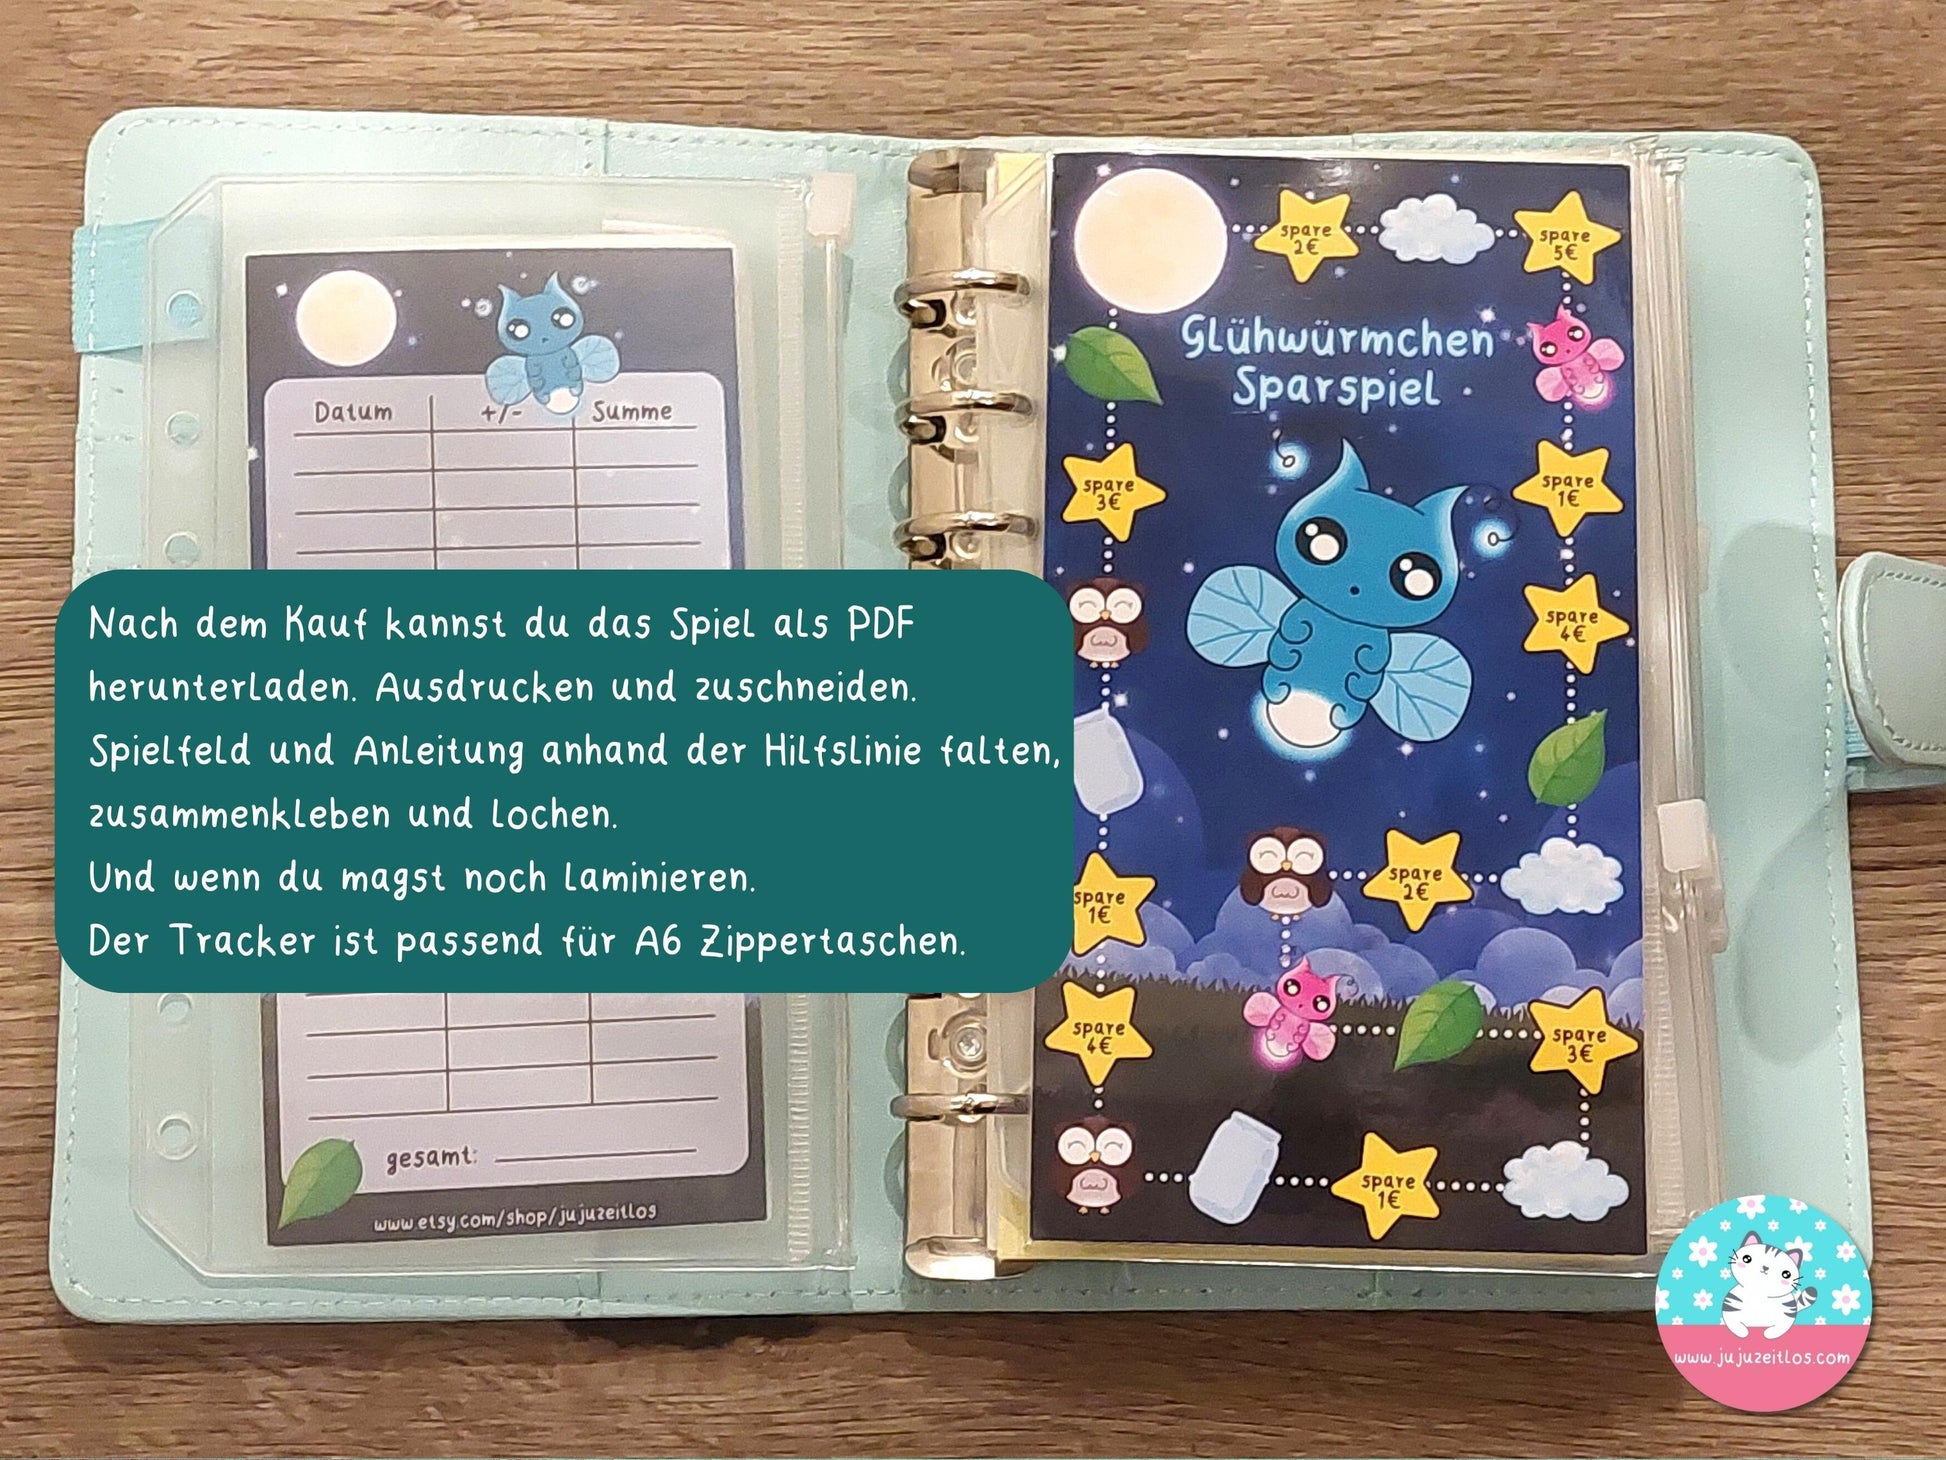 Datum +/- Summe
Nach dem Kauf kannst du das Spiel als PDF
herunterladen. Ausdrucken und zuschneiden.
Spielfeld und Anleitung anhand der Hilfslinie falten,
zusammenkleben und lochen.
Und wenn du magst noch laminieren.
Der Tracker ist passend für A6 Zippertaschen.
gesamt:
www.etsy.com/shop/jujuzeitlos
spare
2€
spare
5€
Glühwürmchen
Sparspiel
spare
3€
spare
1€
spare
4€
spare
2€
spare
1€
spare
4€
spare
3€
spare
1€
www.jujuzeitlos.com